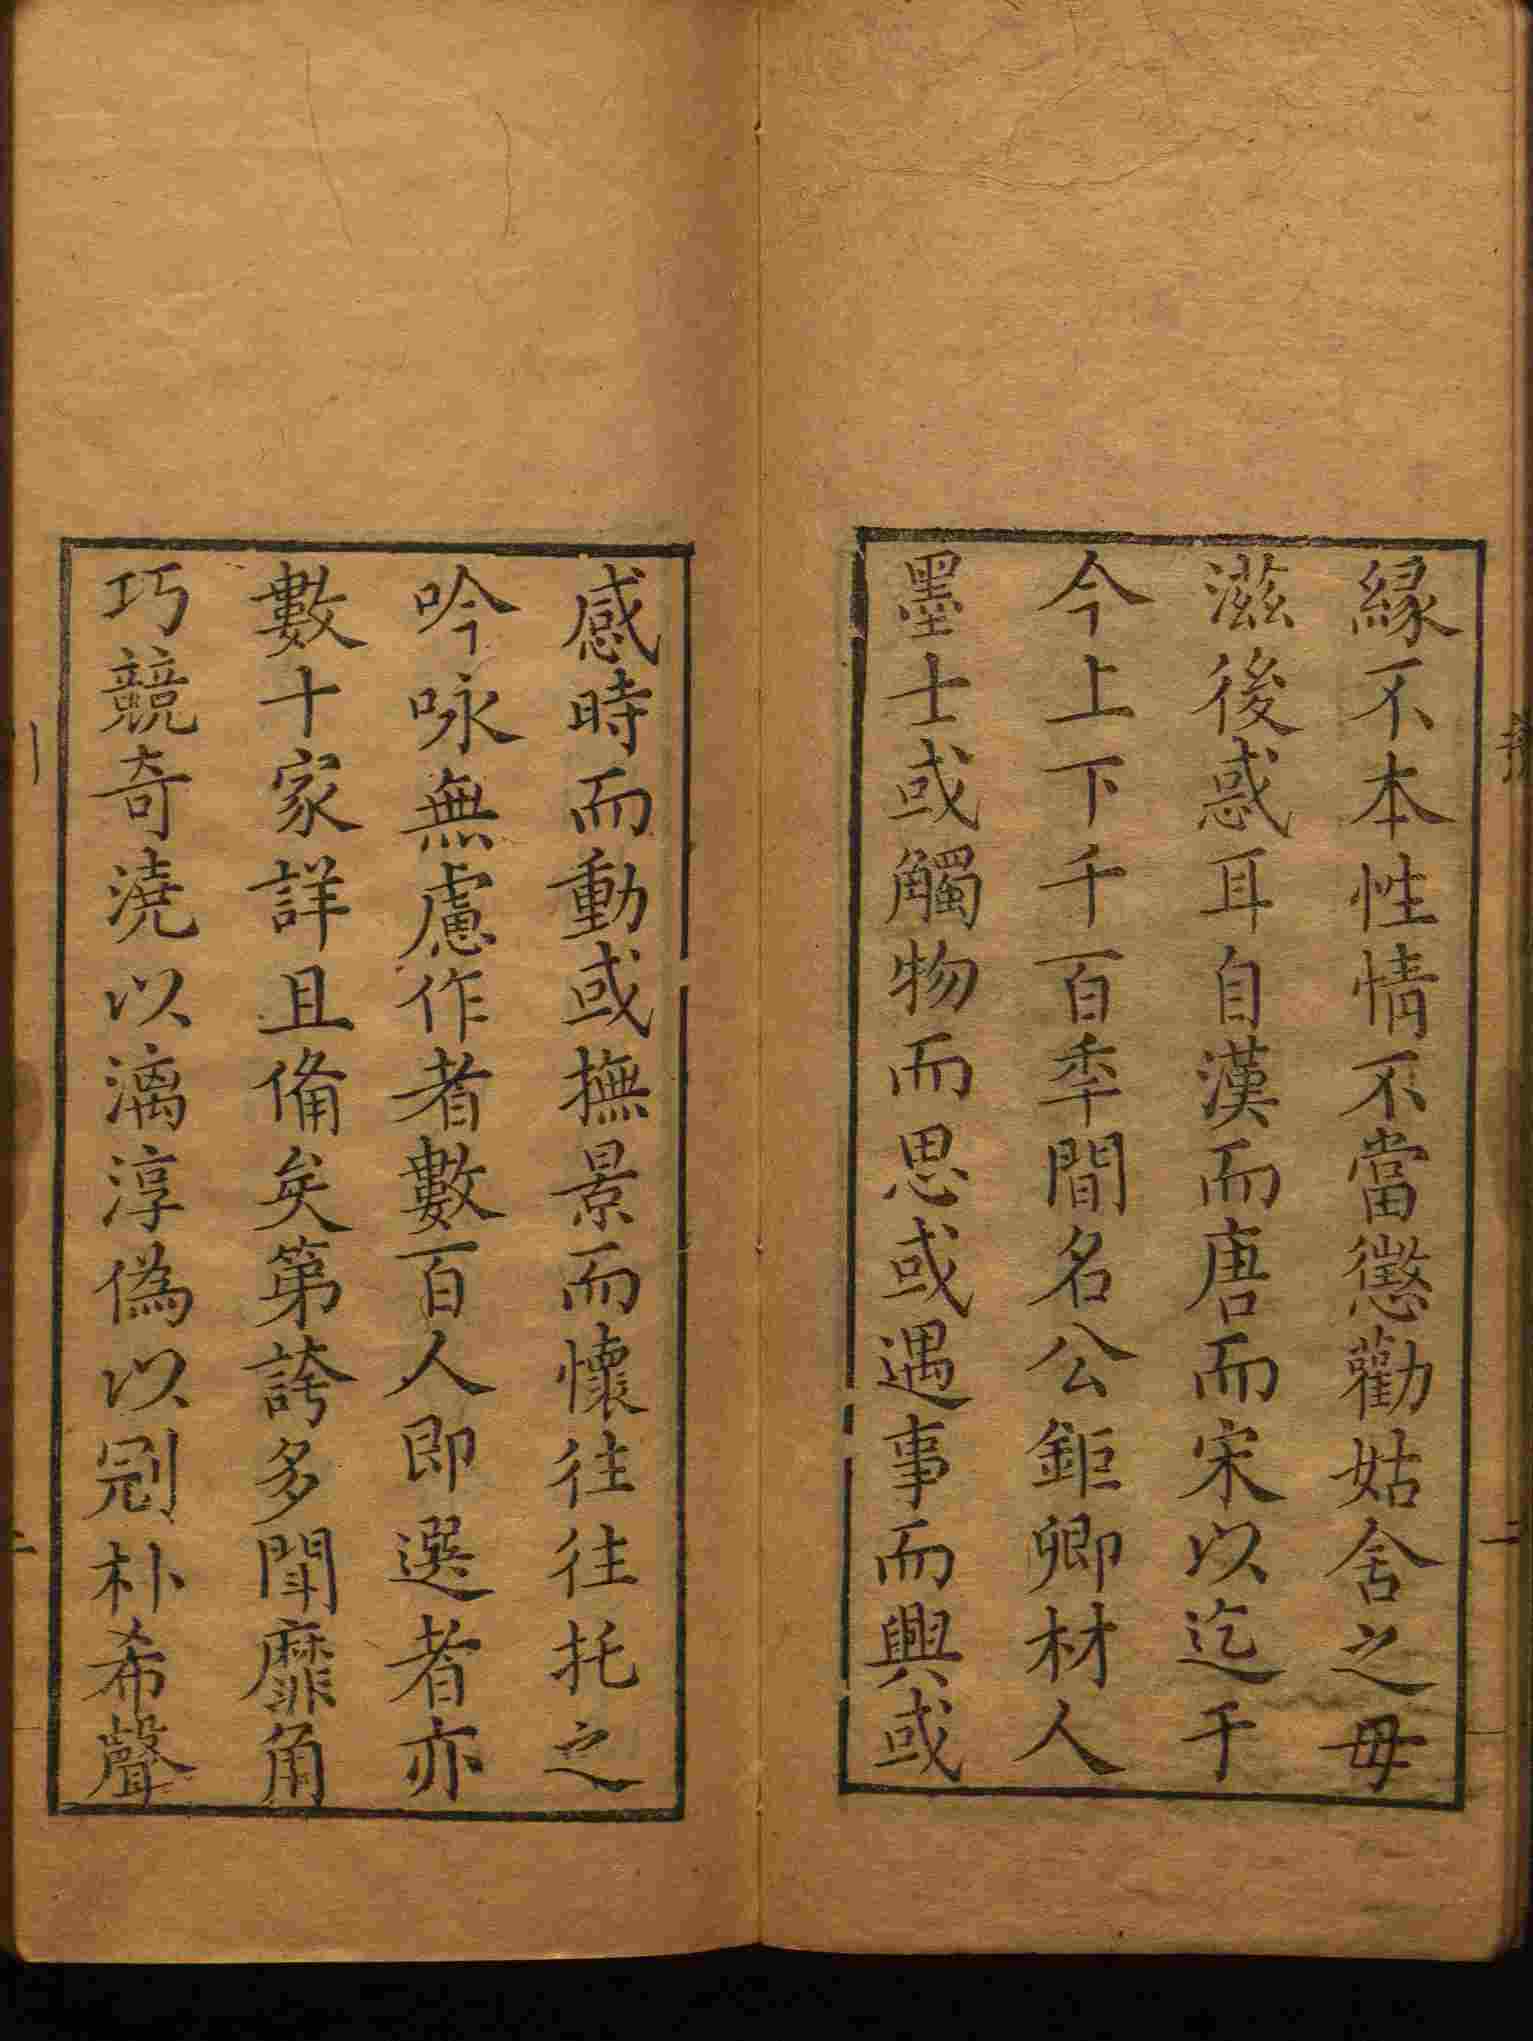 緣不本性情不當懲勸姑舍之毋
滋後惑耳自漢而唐而宋以迄于
今上下千百秊間名公鉅卿材人
墨士或觸物而思或遇事而興或
感時而動或撫景而懷往往托之
吟咏無慮作者數百人即選者亦
數十家詳且備矣第誇多聞靡角
巧競奇澆以漓淳偽以剜朴希聲
二